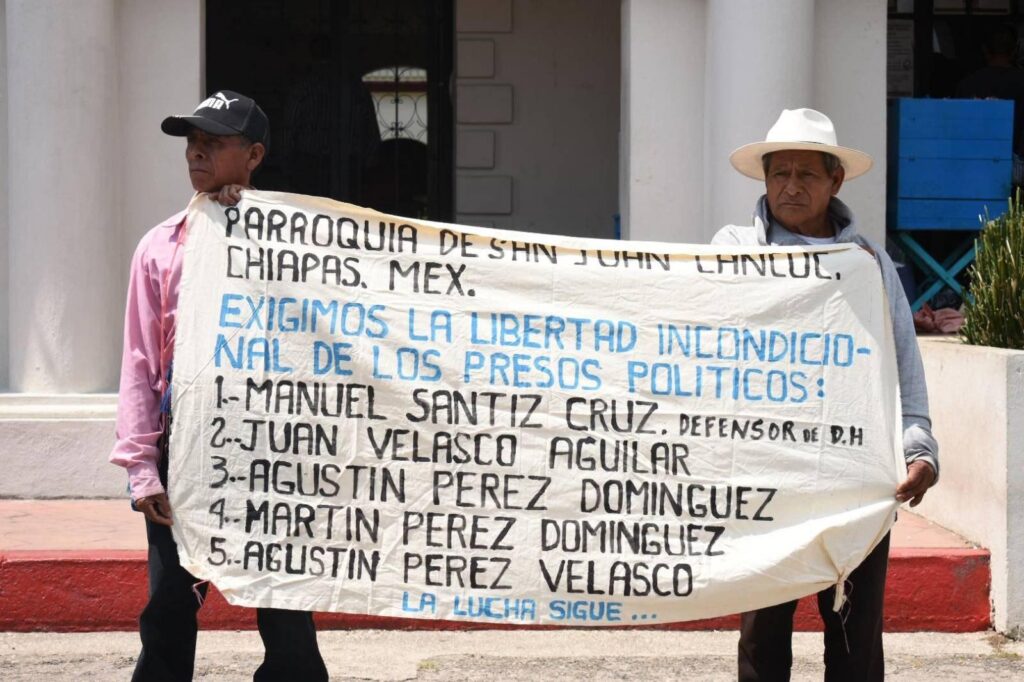 PUMA
PARROQUIA DE SAN JUAN CANCUC.
CHIAPAS. MEX.
EXIGIMOS LA LIBERTAD INCONDICIO-
NAL DE LOS PRESOS POLITICOS:
1.-MANUEL SANTIZ CRUZ. DEFENSOR DE D.H
2.-JUAN VELASCO AGUILAR
3.-AGUSTIN PEREZ DOMINGUEZ
4.-MARTIN PEREZ DOMINGUEZ
5.-AGUSTIN PEREZ VELASCO
LA LUCHA SIGUE...